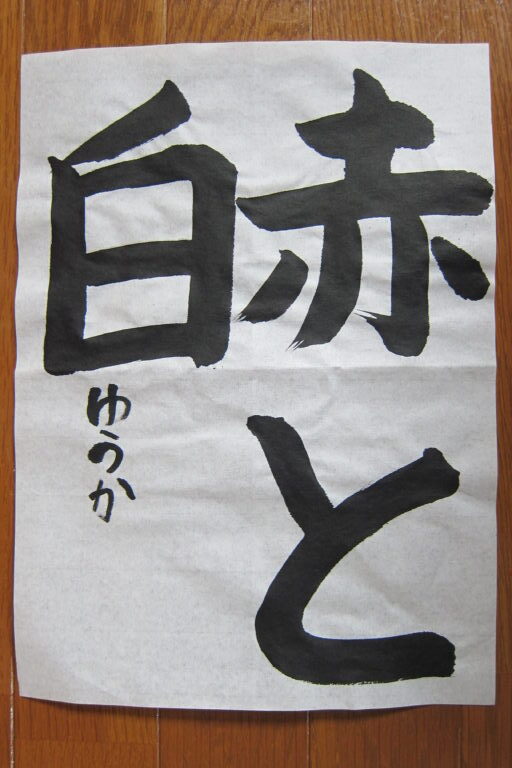 赤と
白
ゆうか